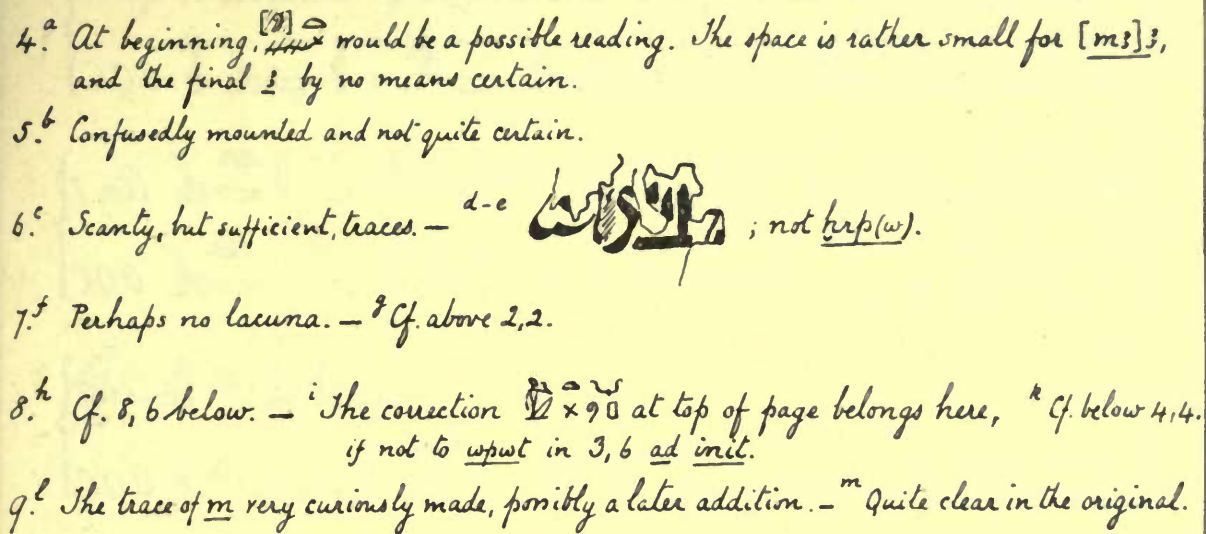 4.ᵃ At beginning, would be a possible reading. The space is rather small for [mꜣ]ꜣ,
and the final ꜣ by no means certain.
5.ᵇ Confusedly mounted and not quite certain.
6.ᶜ Scanty, but sufficient, traces. — ᵈ⁻ᵉ ; not ḫrp(w).
7.ᶠ Perhaps no lacuna. — ᵍ Cf. above 2,2.
8.ʰ Cf. 8, 6 below. — ⁱ The correction at top of page belongs here, ᵏ Cf. below 4,4.
if not to wpwt in 3, 6 ad init.
9.ˡ The trace of m very curiously made, possibly a later addition. — ᵐ Quite clear in the original.